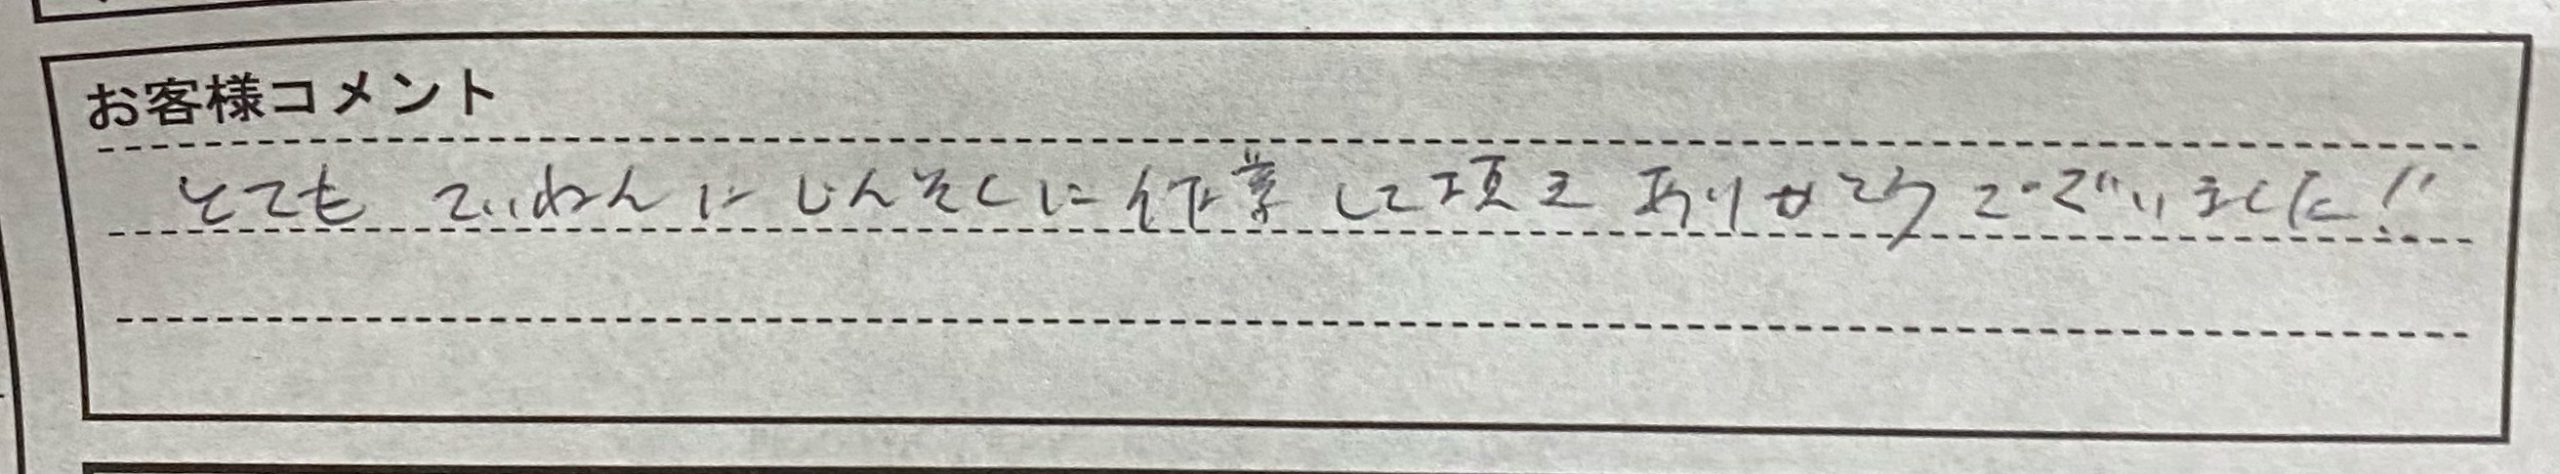 お客様コメント
とても ていねんに じんそくに 作業 して頂き ありがとうございました!!